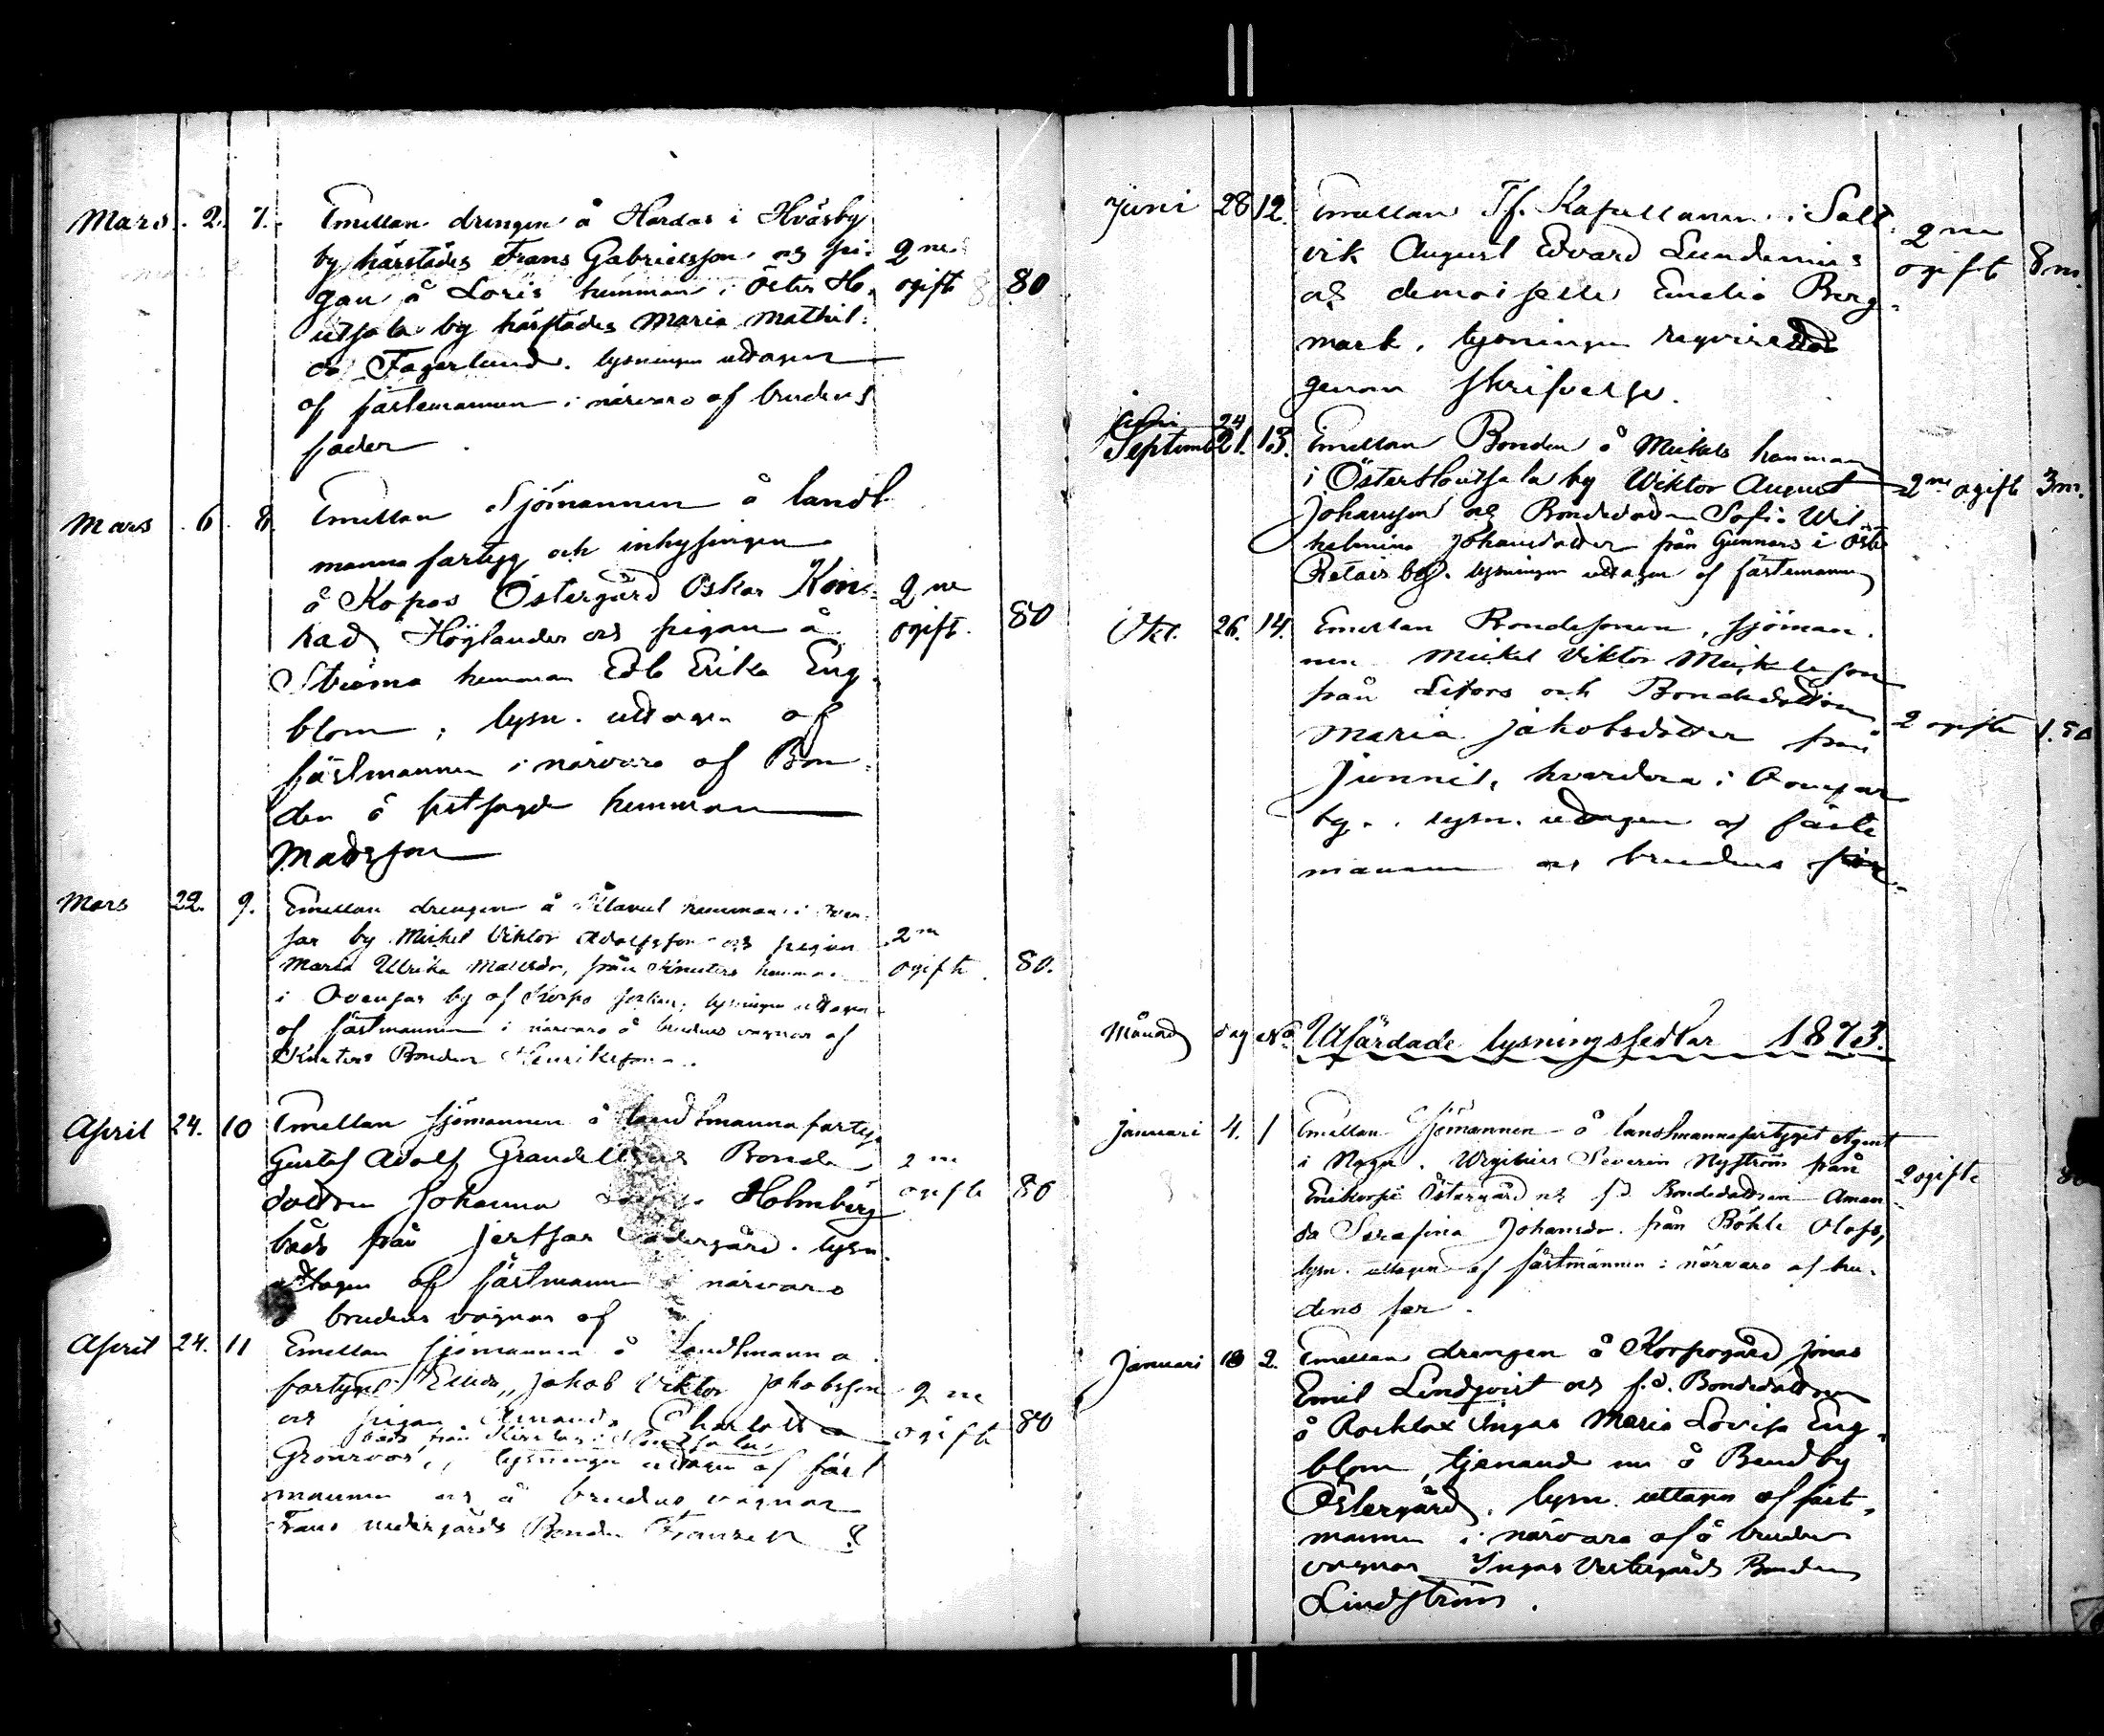 Mars. 2. 7. Emellan drengen å Hardas i Hväsby
by härstädes Frans Gabrielsson och pi- 2ne
gan å Loris hemman i Öster Ho- ogifte 80
utsala by härstädes Maria Mathil-
da Fagerlund. lysningen uttagen
af fästemannen i närvaro af brudens
fader.
Mars 6. 8. Emellan Sjömannen å landt
manna fartyg och inhysingen
å Kopas Östergård Oskar Kon- 2ne
rad Höglander och pigan å ogift. 80
Ströma hemman Edla Erika Eng-
blom, lysn. uttagen af
fästmannen i närvaro af Bon-
den å sistsagde hemman
Madsson
Mars 22. 9. Emellan drengen å hemman i
by Mickel Viktor Adolfsson och pigan 2ne
Maria Ulrika Matsdr, från Knuters hemman ogifte. 80.
i Avensar by af Korpo socken, lysningen uttagen
af fästmannen i närvaro å brudens vägnar af
Knuters Bonden Henriksson.
April 24. 10 Emellan sjömannen å landtmannafartyg
Gustaf Adolf Grandell och Bonde 2ne
dottren Johanna Holmberg ogifte 80
båda från Jertsar Södergård. lysn.
uttagen af fästmannen i närvaro
brudens vägnar af
April 24. 11 Emellan sjömannen å Landtmanna
fartyget Jakob Viktor Jakobsson 2ne
och pigan Amanda Charlotta ogifte 80
båda från
Grönroos, lysningen uttagen af fäst
mannen och å brudens vägnar
Frans nedergårds Bonden Franzen
Juni 28 12. Emellan Tf. Kapellanen i Salt- 2ne
vik August Edvard Lundenius ogifte 8m.
och demoiselle Emelia Berg-
mark, lysningen reqvirerad
genom skrifvelse.
Septemb 21. 13. Emellan Bonden å Mickels hemman
i Österhoutsala by Wiktor August 2ne ogifte 3m.
Johansson och Bondedottren Sofia Wil
helmina Johansdotter från Gunnars i Öster
Retais by. lysningen uttagen af fästemannen
Okt. 26. 14. Emellan Bondesonen, sjöman-
nen Mickel Viktor Mickelsson
från Lefors och Bondedottren
Maria Jakobsdotter från 2 ogifte 1.50
Junnis, hvardera i Avensar
by. lysn. uttagen af fäste
mannen och brudens
Månad dag No Utfärdade lysningssedlar 1873.
Januari 4. 1 Emellan Sjömannen å landtmannafartyget Agent
i Nagu. Severin Nyström från 2 ogifte 80
Östergård och f.d. Bondedottren Aman-
da Serafina Johansdr. från Böhle Olofs,
lysn. uttagen af fästmannen i närvaro af bru-
dens far.
Januari 18 2. Emellan drengen å Korpogård Jonas
Emil Lindqvist och f.d. Bondedottren
å Rocklax Ingas Maria Lovisa Eng-
blom, tjenande nu å Bendby
Östergård. lysn. uttagen af fäst-
mannen i närvaro af å brudens
vägnar Ingas Vestergårds Bonden
Lindström.